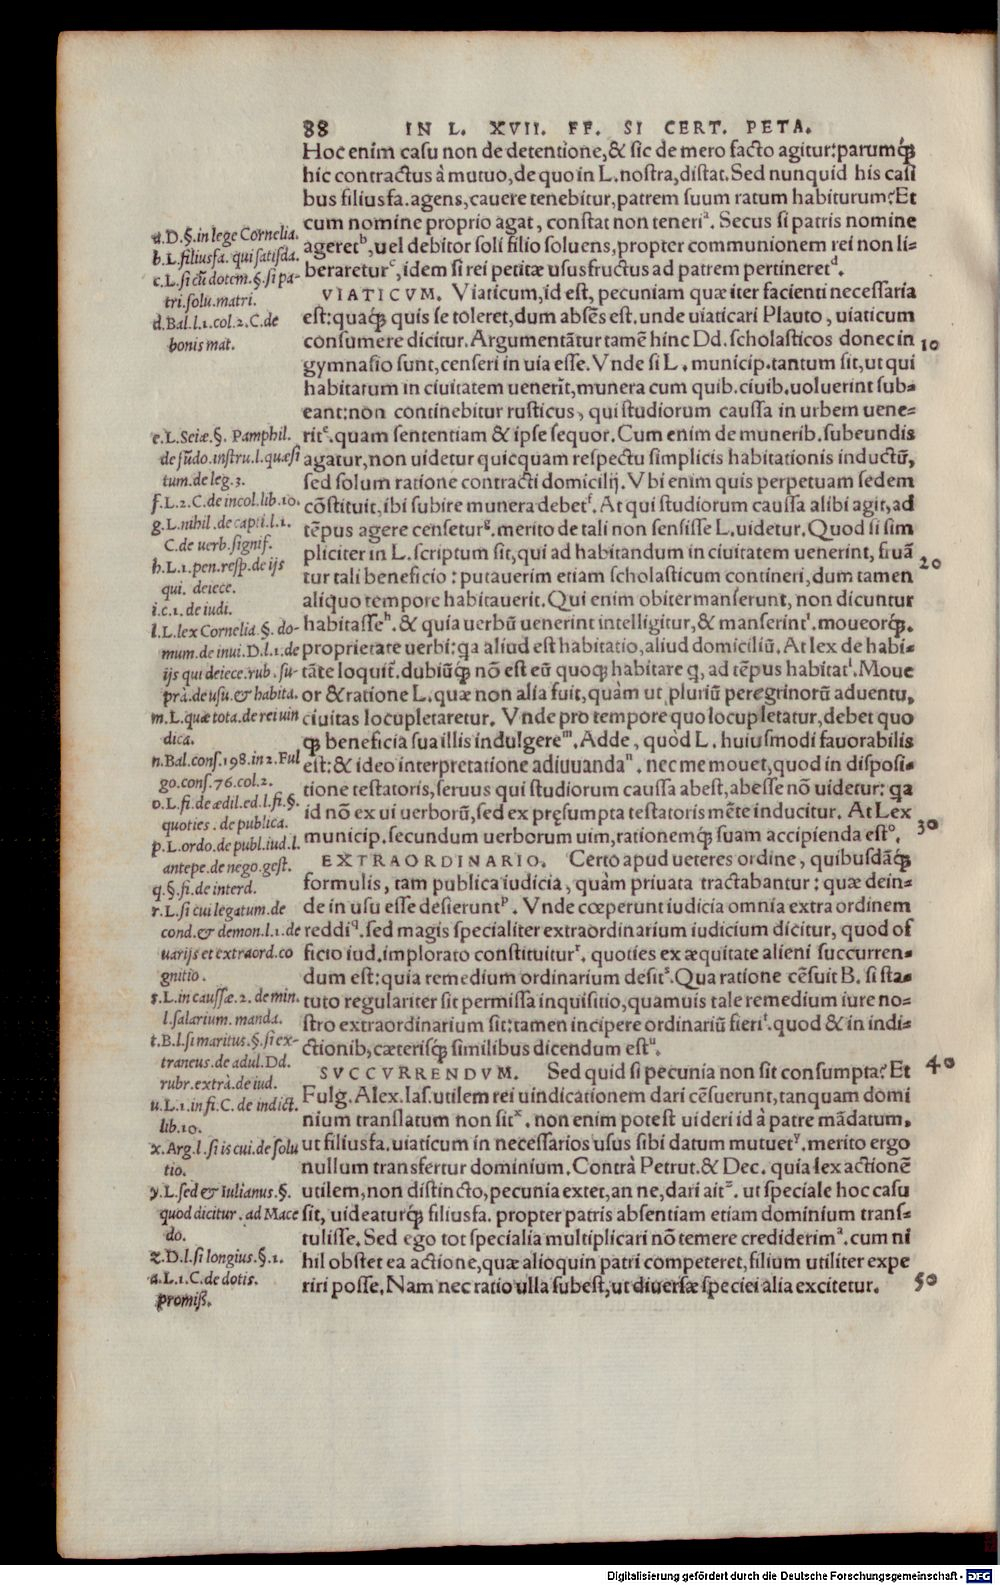 88 IN L. XVII. FF. SI CERT. PETA.
Hoc enim casu non de detentione,& sic de mero facto agitur:parumq́ꝫ
hic contractus à mutuo,de quo in L.nostra,distat.Sed nunquid his casi
bus filiusfa.agens,cauere tenebitur,patrem suum ratum habiturum?Et
cum nomine proprio agat, constat non teneriᵃ. Secus si patris nomine
ageretᵇ,uel debitor soli filio soluens,propter communionem rei non li-
berareturᶜ,idem si rei petitæ ususfructus ad patrem pertineretᵈ.
VIATICVM. Viaticum,id est, pecuniam quæ iter facienti necessaria
est:quaq́ꝫ quis se toleret,dum absẽs est.unde uiaticari Plauto, uiaticum
consumere dicitur.Argumentãtur tamẽ hinc Dd.scholasticos donec in
gymnasio sunt,censeri in uia esse.Vnde si L. municip.tantum sit,ut qui
habitatum in ciuitatem uenerĩt,munera cum quib.ciuib.uoluerint sub-
eant:non continebitur rusticus, qui studiorum caussa in urbem uene-
ritᵉ.quam sententiam & ipse sequor.Cum enim de munerib.subeundis
agatur,non uidetur quicquam respectu simplicis habitationis inductũ,
sed solum ratione contracti domicilij.Vbi enim quis perpetuam sedem
cõstituit,ibi subire munera debetᶠ.At qui studiorum caussa alibi agit,ad
tẽpus agere censeturᵍ.merito de tali non sensisse L.uidetur.Quod si sim
pliciter in L.scriptum sit,qui ad habitandum in ciuitatem uenerint, fruã
tur tali beneficio: putauerim etiam scholasticum contineri,dum tamen
aliquo tempore habitauerit.Qui enim obiter manserunt, non dicuntur
habitasseʰ.& quia uerbũ uenerint intelligitur,& manserintⁱ.moueorq́ꝫ.
proprietate uerbi:qa aliud est habitatio,aliud domiciliũ.At lex de habi-
tãte loquit̃.dubiũq́ꝫ nõ est eũ quoqꝫ habitare q, ad tẽpus habitatˡ.Moue
or & ratione L.quæ non alia fuit,quàm ut pluriũ peregrinorũ aduentu,
ciuitas locupletaretur. Vnde pro tempore quo locupletatur,debet quo
qꝫ beneficia sua illis indulgereᵐ.Adde, quòd L. huiusmodi fauorabilis
est:& ideo interpretatione adiuuandaⁿ. nec me mouet,quod in disposi-
tione testatoris,seruus qui studiorum caussa abest,abesse nõ uidetur: qa
id nõ ex ui uerborũ,sed ex pręsumpta testatoris mẽte inducitur. At Lex
municip.secundum uerborum uim,rationemq́ꝫ suam accipienda estᵒ.
EXTRAORDINARIO. Certo apud ueteres ordine, quibusdãq́ꝫ
formulis, tam publica iudicia, quàm priuata tractabantur: quæ dein-
de in usu esse desieruntᵖ. Vnde cœperunt iudicia omnia extra ordinem
reddi𐞥.sed magis specialiter extraordinarium iudicium dicitur, quod of
ficio iud.implorato constituiturʳ. quoties ex æquitate alieni succurren-
dum est:quia remedium ordinarium desitˢ.Qua ratione cẽsuit B. si sta-
tuto regulariter sit permissa inquisitio,quamuis tale remedium iure no-
stro extraordinarium sit:tamen incipere ordinariũ fieriᵗ.quod & in indi-
ctionib,cæterisq́ꝫ similibus dicendum estᵘ.
SVCCVRRENDVM. Sed quid si pecunia non sit consumpta? Et
Fulg. Alex.Ias.utilem rei uindicationem dari cẽsuerunt,tanquam domi
nium translatum non sitˣ. non enim potest uideri id à patre mãdatum,
ut filiusfa.uiaticum in necessarios usus sibi datum mutuetʸ.merito ergo
nullum transfertur dominium.Contrà Petrut.& Dec. quia lex actionẽ
utilem,non distincto,pecunia extet,an ne,dari aitᶻ. ut speciale hoc casu
sit, uideaturq́ꝫ filiusfa. propter patris absentiam etiam dominium trans-
tulisse.Sed ego tot specialia multiplicari nõ temere crediderimᵃ.cum ni
hil obstet ea actione,quæ alioquin patri competeret,filium utiliter expe
riri posse.Nam nec ratio ulla subest,ut diuersæ speciei alia excitetur.
a.D.§.in lege Cornelia.
b.L.filiusfa. qui satisda.
c.L.si cũ dotem.§.si pa-
tri.solu.matri.
d.Bal.l.1.col.2.C.de
bonis mat.
e.L.Seiæ.§. Pamphil.
de fũdo.instru.l.quæsi
tum.de leg.3.
f.L.2.C.de incol.lib.10.
g.L.nihil.de capti.l.1.
C.de uerb.signif.
h.L.1.pen.resp.de ijs
qui. deiece.
i.c.1.de iudi.
l.L.lex Cornelia.§. do-
mum.de inui.D.l.1.de
ijs qui deiece.rub. su-
prà.de usu.& habita.
m.L.quæ tota.de rei uin
dica.
n.Bal.cons.198.in 2.Ful
go.cons.76.col.2.
o.L.fi.de ædil.ed.l.fi.§.
quoties. de publica.
p.L.ordo.de publ.iud.l.
antepe.de nego.gest.
q.§.fi.de interd.
r.L.si cui legatum.de
cond.& demon.l.1.de
uarijs et extraord.co
gnitio.
s.L.in caussæ.2. de min.
l.salarium. manda.
t.B.l.si maritus.§.si ex-
traneus.de adul.Dd.
rubr.extrà.de iud.
u.L.1.in fi.C. de indict.
lib.10.
x.Arg.l.si is cui.de solu
tio.
y.L.sed & Iulianus.§.
quod dicitur. ad Mace
do.
z.D.l.si longius.§.1.
a.L.1.C.de dotis.
promiß.
10
20
30
40
50
Digitalisierung gefördert durch die Deutsche Forschungsgemeinschaft - DFG